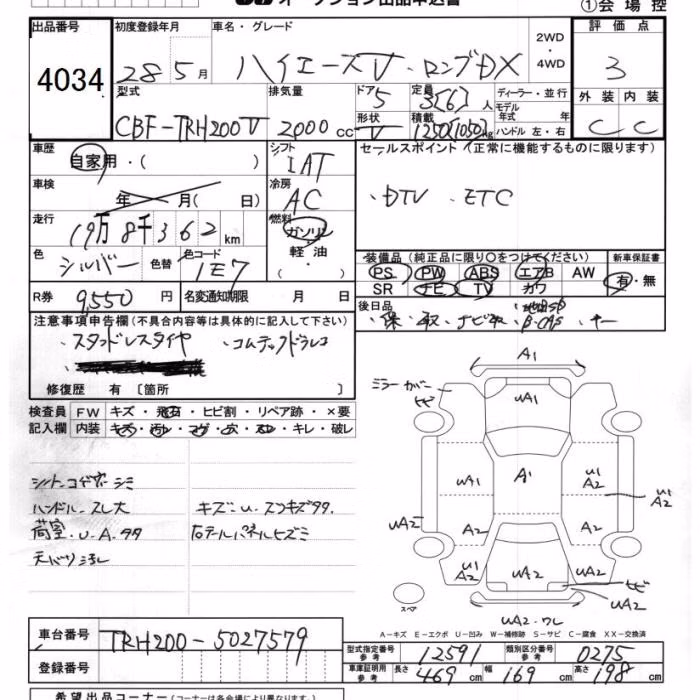 ①会場控
出品番号 初度登録年月 車名・グレード 2WD・4WD 評価点
4034 28 5月 ハイエースV・ロングDX 3
型式 排気量 ドア 5 定員 3(6)人 ディーラー・並行 外装 内装
CBF-TRH200V 2000cc 形状 V 積載 1250(1050)kg モデル年式 年 ハンドル 左・右 C C
車歴 自家用・( ) シフト IAT セールスポイント(正常に機能するものに限ります)
車検 年 月( 日) 冷房 AC ・DTV ・ETC
走行 19万8千362km 燃料 ガソリン・軽油・( )
色 シルバー 色替 色コード 1E7 装備品(純正品に限り○をつけてください) 新車保証書
PS PW ABS エアB AW 有・無
SR ナビ TV カワ
R券 9,550円 名変通知期限 月 日 後日品
・保・取・ナビ取・B-CAS・キー
注意事項申告欄(不具合内容等は具体的に記入して下さい)
・スタッドレスタイヤ ・コムテックドラレコ
修復歴 有〔箇所 〕
検査員 FW キズ・飛石・ヒビ割・リペア跡・×要
記入欄 内装 キズ・汚れ・コゲ・穴・スレ・キレ・破レ
シート・コゲ シミ
ハンドル・スレ大 キズ・U・スリキズタタ
荷室・U・A・タタ 右テールパネルヒズミ
天バリ汚レ
A1
ミラーカバー ヒビ
UA1
UA1 A1 U1 A2
U1 A2
UA2 A2 A2
U1 A2 UA2 U1 A2
ヒビ
UA2
スペア
UA2・ワレ
A-キズ E-エクボ U-凹み W-補修跡 S-サビ C-腐食 XX-交換済
車台番号 TRH200-5027579
型式指定番号 参考 12591 類別区分番号 参考 0275
登録番号 車庫証明用 参考 長さ 469cm 幅 169cm 高さ 198cm
希望出品コーナー(コーナーは各会場により異なります)